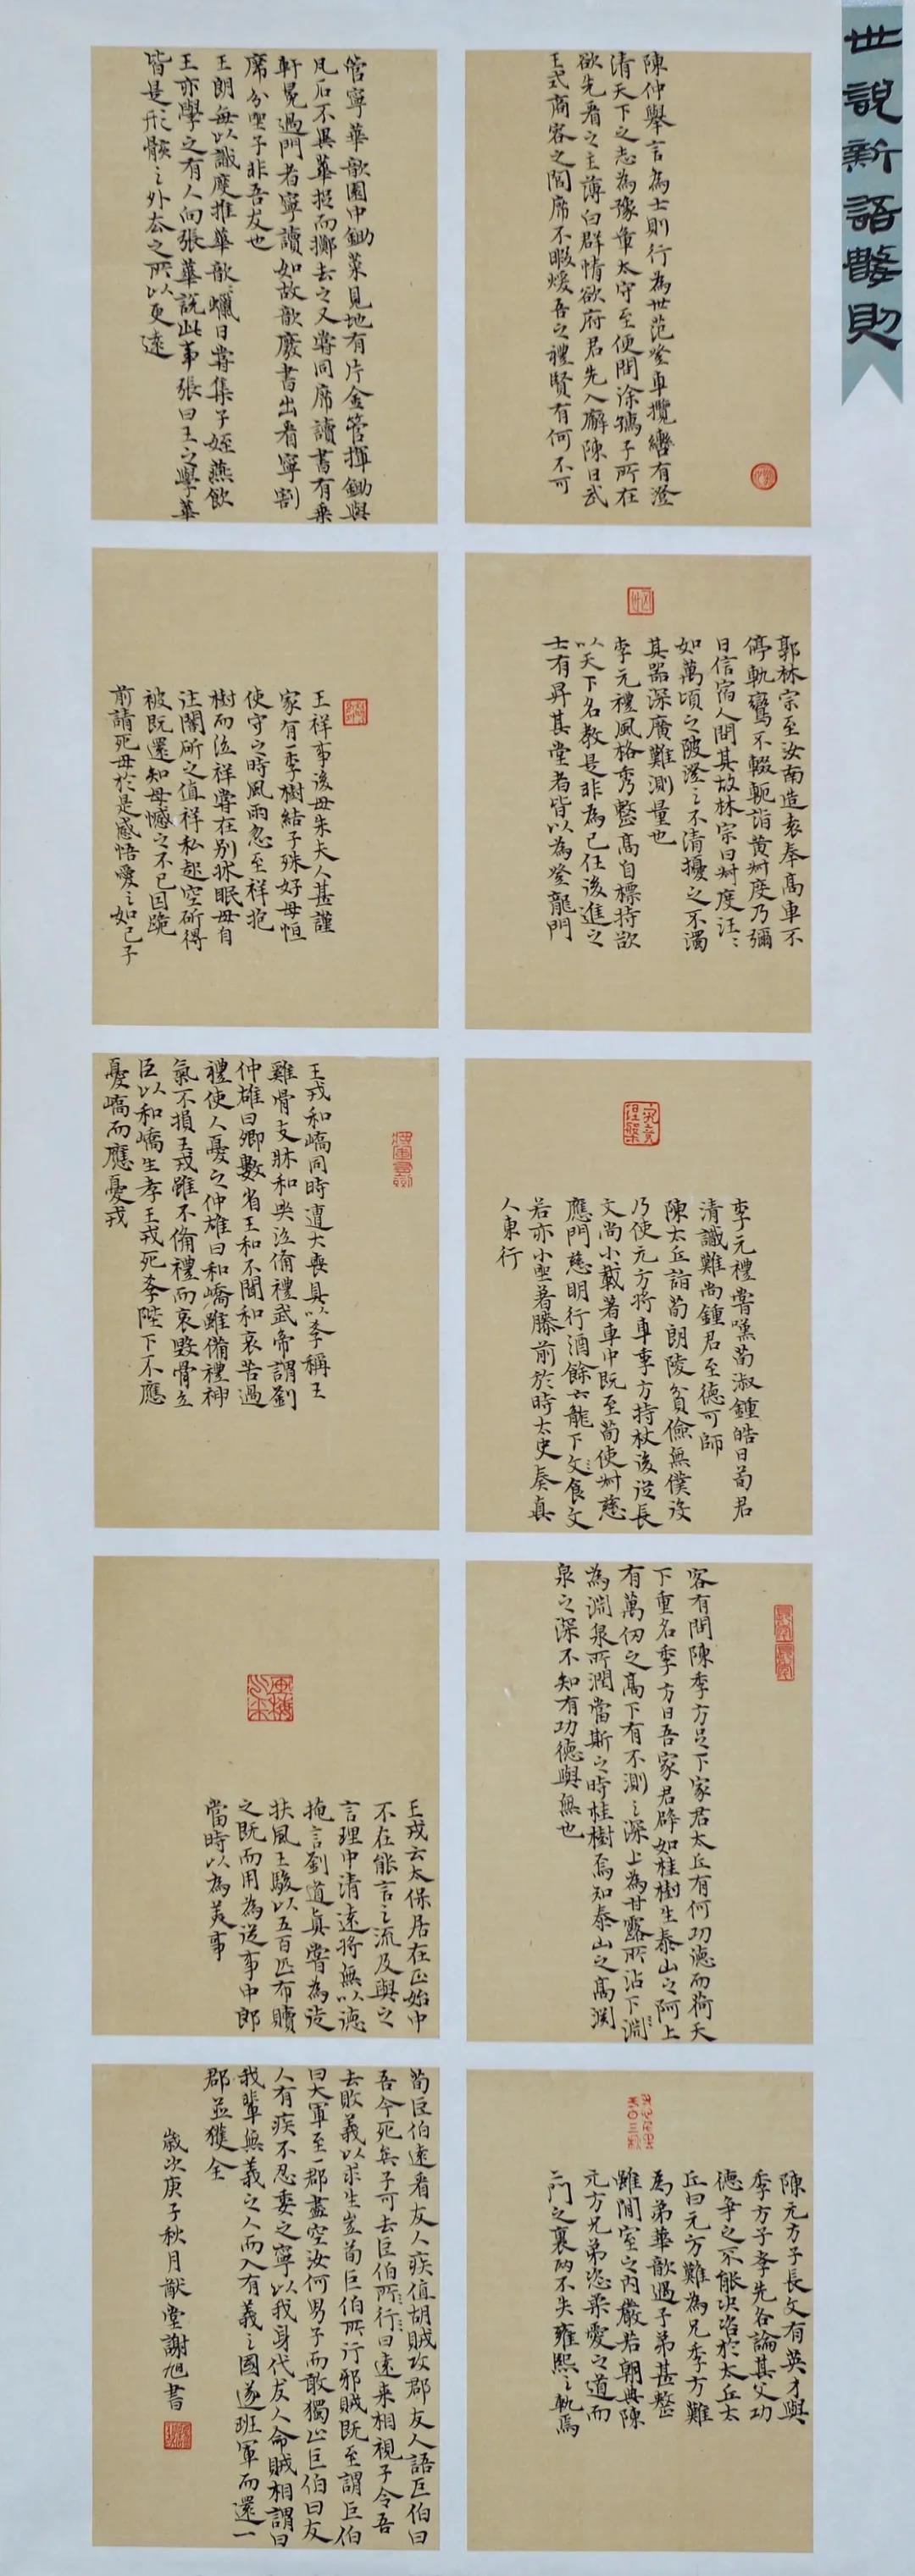 世說新語數則
陳仲舉言為士則行為世范登車攬轡有澄
清天下之志為豫章太守至便問徐孺子所在
欲先看之主薄白群情欲府君先入廨陳曰武
王式商容之閭席不暇煖吾之禮賢有何不可
郭林宗至汝南造袁奉高車不
停軌鸞不輟軛詣黄叔度乃彌
日信宿人問其故林宗曰叔度汪〻
如萬頃之陂澄之不清擾之不濁
其器深廣難測量也
李元禮風格秀整高自標持欲
以天下名教是非為己任後進之
士有昇其堂者皆以為登龍門
李元禮嘗嘆荀淑鍾皓曰荀君
清識難尚鍾君至德可師
陳太丘詣荀朗陵貧儉無僕役
乃使元方將車季方持杖後從長
文尚小載著車中既至荀使叔慈
應門慈明行酒餘六龍下文食文
若亦小坐著膝前於時太史奏真
人東行
客有問陳季方足下家君太丘有何功德而荷天
下重名季方曰吾家君辟如桂樹生泰山之阿上
有萬仞之高下有不測之深上為甘露所沾下淵
為淵泉所潤當斯之時桂樹焉知泰山之高淵
泉之深不知有功德與無也
陳元方子長文有英才與
季方子孝先各論其父功
德爭之不能決咨於太丘太
丘曰元方難為兄季方難
為弟華歆遇子弟甚整
雖閒室之內嚴若朝典陳
元方兄弟恣柔愛之道而
二門之裏两不失雍熙之軌焉
管寧華歆園中鋤菜見地有片金管揮鋤與
瓦石不異華捉而擲去之又嘗同席讀書有乘
軒冕過門者寧讀如故歆廢書出看寧割
席分坐子非吾友也
王朗每以識度推華歆蠟日嘗集子姪燕飲
王亦學之有人向張華說此事張曰王之學華
皆是形骸之外去之所以更遠
王祥事後母朱夫人甚謹
家有一李樹結子殊好母恒
使守之時風雨忽至祥抱
樹而泣祥嘗在別牀眠母自
往闇斫之值祥私起空斫得
被既還知母憾之不已因跪
前請死母於是感悟愛之如己子
王戎和嶠同時遭大喪具以孝稱王
雞骨支牀和哭泣備禮武帝謂劉
仲雄曰卿數省王和不聞和哀苦過
禮使人憂之仲雄曰和嶠雖備禮神
氣不損王戎雖不備禮而哀毀骨立
臣以和嶠生孝王戎死孝陛下不應
憂嶠而應憂戎
王戎云太保居在正始中
不在能言之流及與之
言理中清遠將無以德
掩言劉道真嘗為徒
扶風王駿以五百匹布贖
之既而用為從事中郎
當時以為美事
荀巨伯遠看友人疾值胡賊攻郡友人語巨伯曰
吾今死矣子可去巨伯所行曰遠來相視子令吾
去敗義以求生豈荀巨伯所行邪賊既至謂巨伯
曰大軍至一郡盡空汝何男子而敢獨止巨伯曰友
人有疾不忍委之寧以我身代友人命賊相謂曰
我輩無義之人而入有義之國遂班軍而還一
郡並獲全
歲次庚子秋月猷堂謝旭書